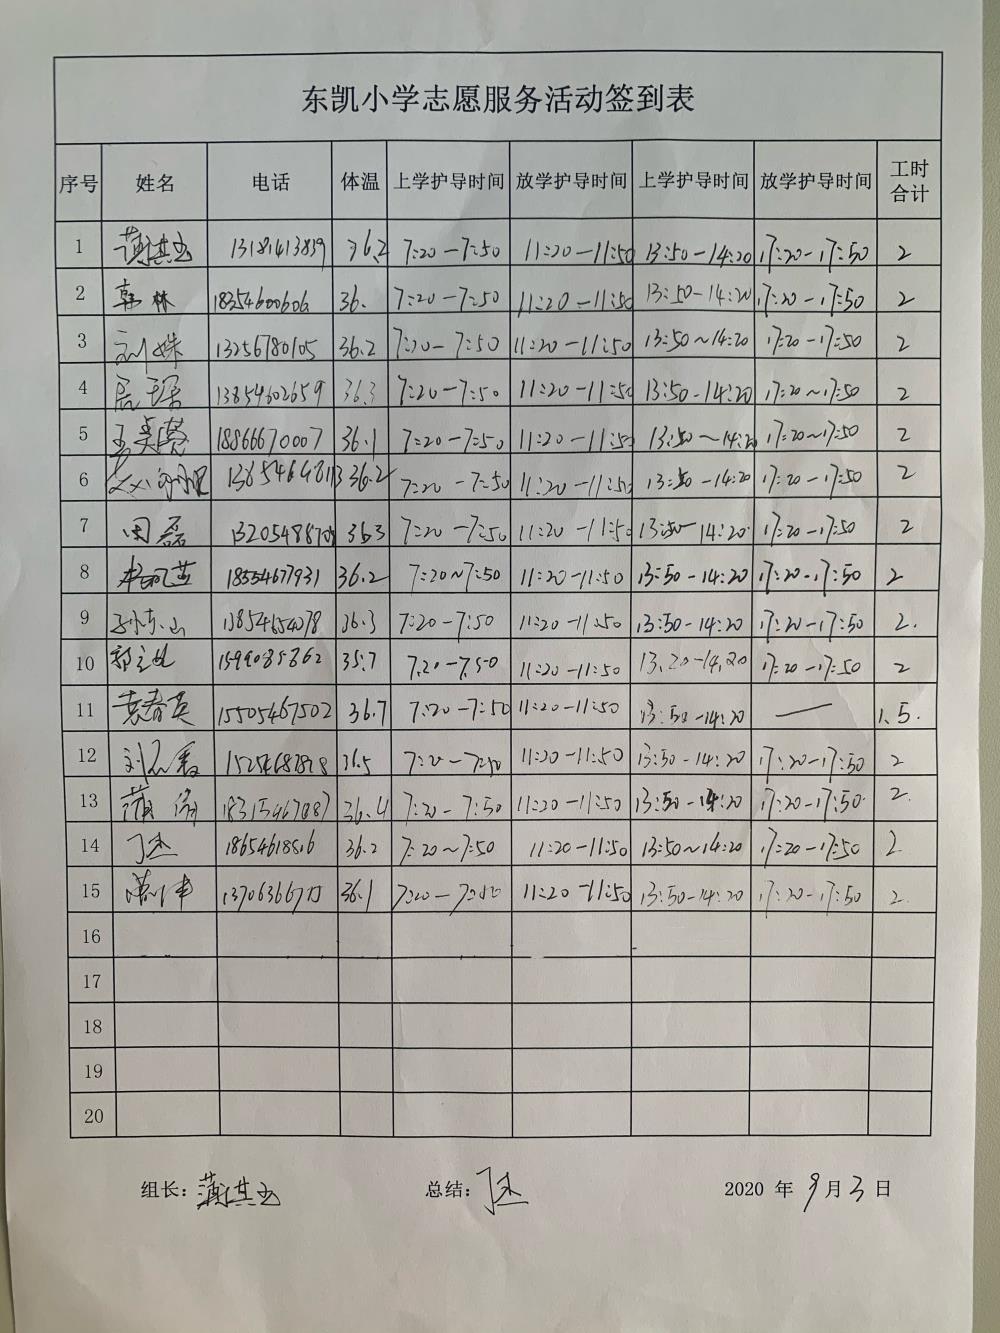 东凯小学志愿服务活动签到表
序号 姓名 电话 体温 上学护导时间 放学护导时间 上学护导时间 放学护导时间 工时合计
1 13181413839 36.2 7:20-7:50 11:20-11:50 13:50-14:20 17:20-17:50 2
2 韩林 18354600606 36. 7:20-7:50 11:20-11:50 13:50-14:20 17:20-17:50 2
3 刘姝 13256780105 36.2 7:20-7:50 11:20-11:50 13:50~14:20 17:20-17:50 2
4 13854602659 36.3 7:20-7:50 11:20-11:50 13:50-14:20 17:20~17:50 2
5 18866670007 36.1 7:20-7:50 11:20-11:50 13:50~14:20 17:20~17:50 2
6 36.2 7:20-7:50 11:20-11:50 13:50-14:20 17:20-17:50 2
7 周磊 36.3 7:20-7:50 11:20-11:50 13:50-14:20 17:20-17:50 2
8 18554677931 36.2 7:20~7:50 11:20-11:50 13:50-14:20 17:20-17:50 2
9 孙东山 13854654078 36.3 7:20-7:50 11:20-11:50 13:50-14:20 17:20-17:50 2.
10 15990835862 35.7 7.20-7.50 11:20-11:50 13.20-14.20 17:20-17:50 2
11 袁春英 15505467502 36.7 7:20-7:50 11:20-11:50 13:50-14:20 — 1.5.
12 36.5 11:20-11:50 13:50-14:20 17:20-17:50 2
13 18315467887 36.4 7:20-7:50 11:20-11:50 13:50-14:20 17:20-17:50 2.
14 丁杰 36.2 7:20~7:50 11:20-11:50 13:50~14:20 17:20-17:50 2
15 36.1 7:20-7:50 11:20-11:50 13:50-14:20 17:20-17:50 2
16
17
18
19
20
组长: 总结:丁杰 2020 年 9 月 3 日